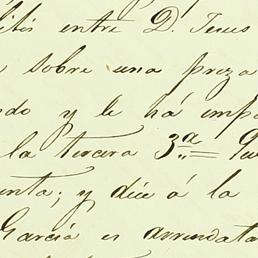 entre D. Jesus
sobre una preza
ndo y le há impo
la tercera 3ª
enta; y dice á la
Garcia es arrendata